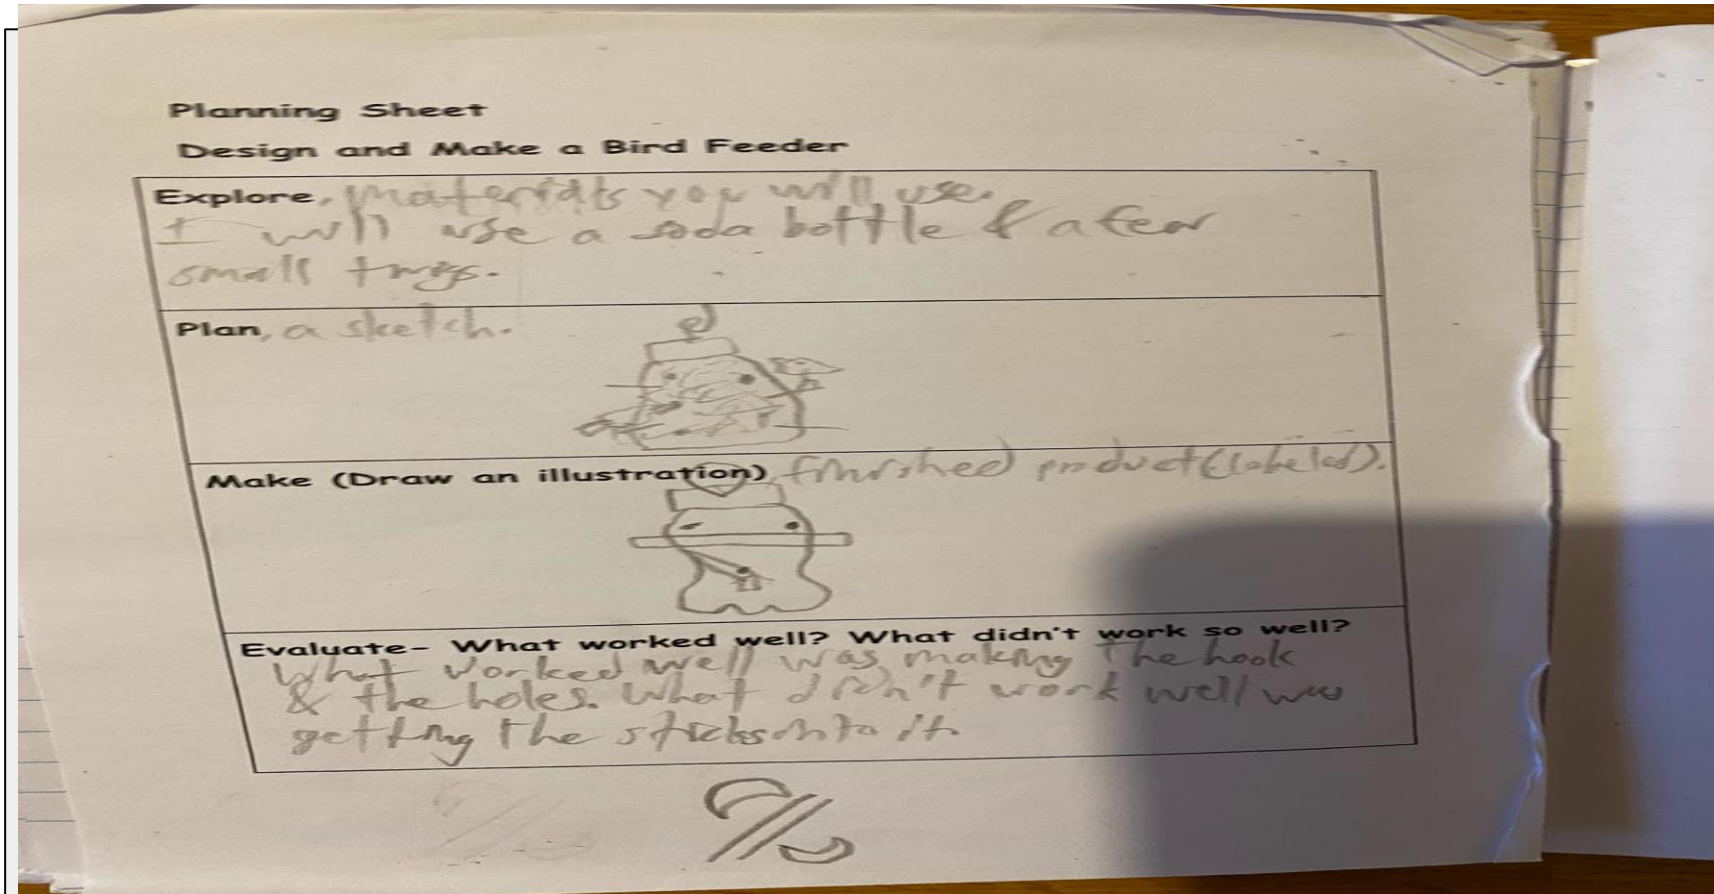 Planning Sheet
Design and Make a Bird Feeder
Explore, materials you will use.
I will use a soda bottle & a few
small twigs.
Plan, a sketch.
Make (Draw an illustration), finished product (labeled).
Evaluate- What worked well? What didn't work so well?
What worked well was making the hook
& the holes. What didn't work well was
getting the sticks into it.